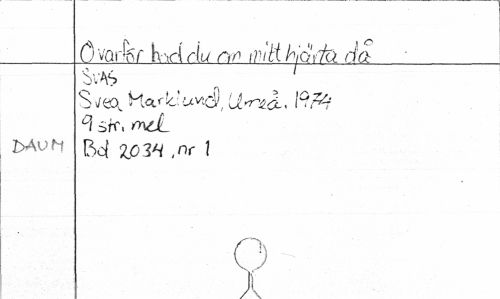 O varför bad du om mitt hjärta då
SVAS
Svea Marklund, Umeå, 1974
9 str. mel
DAUM Bd 2034, nr 1